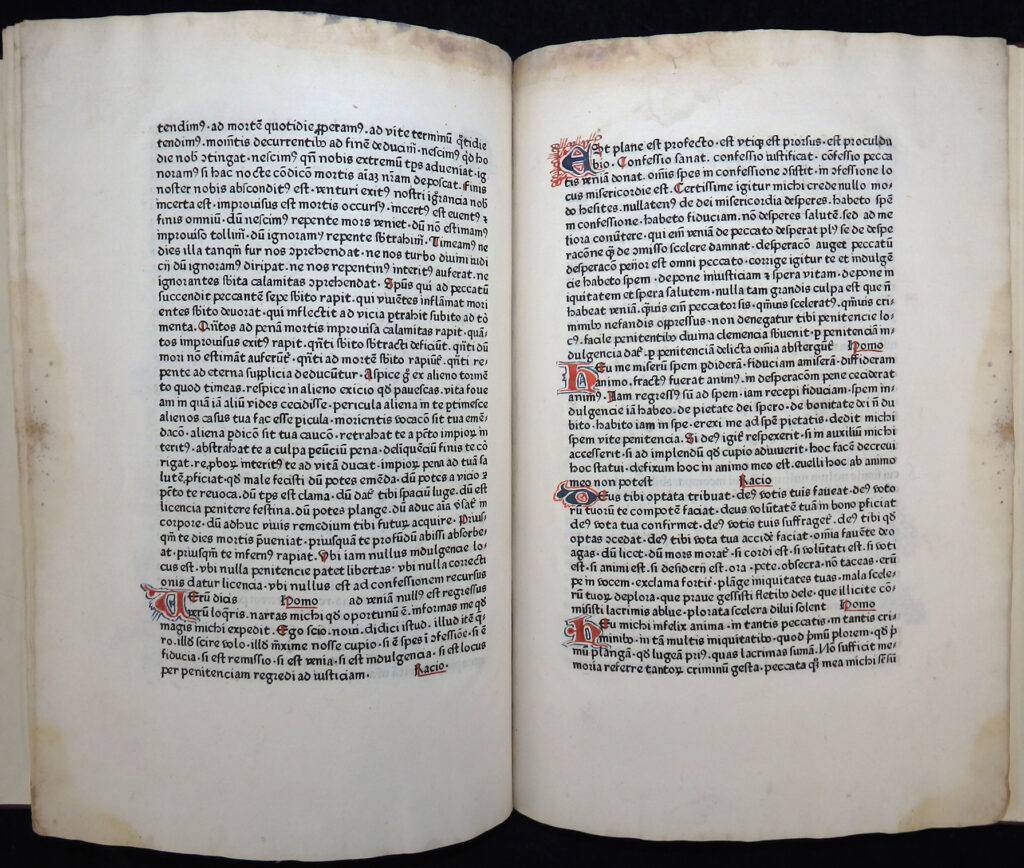 tendimꝰ · ad mortē quotidie ꝓperamꝰ . ad vite terminū q̄tidie
tendimꝰ . momētis decurrentibꝰ ad finē deducim̄ . nescimꝰ qd̄ ho
die nob̄ ↄtingat · nescimꝰ qn̄ nobis extremū tp̄s adueniat · ig
noram̄ si hac nocte cōdicō mortis aīaꝫ nr̄am deposcat . Finis
noster nobis absconditꝰ est · venturi exitꝰ nostri ignrancia nob̄
incerta est · improuisus est mortis occursꝰ · incertꝰ est euentꝰ ⁊
finis omniū · dū nescimꝰ repente mors veniet · dū nō estimamꝰ
improuiso tollim̄ · dū ignoramꝰ repente sb̄trahim̄ . Timeamꝰ ne
dies illa tanqm̄ fur nos ↄprehendat · ne nos turbo diuini iudi
cij dū ignoramꝰ diripat · ne nos repentinꝰ interitꝰ auferat · ne
ignorantes sb̄ita calamitas ↄprehendat . Sp̄us qui ad peccatū
succendit peccantē sepe sb̄ito rapit · qui viuentes inflamat mori
entes sb̄ito deuorat · qui inflectit ad vicia ꝑtrahit subito ad tō
menta . Qn̄tos ad penā mortis improuisa calamitas rapit · quā-
tos improuisus exitꝰ rapit · qn̄ti sb̄ito sb̄tracti deficiūt · qn̄ti dū
mori nō estimāt auferūt᷑ · qn̄ti ad mortē sb̄ito rapiūt᷑ · qn̄ti re/
pente ad eterna suꝑplicia deducūtur . Aspice ḡ ex alieno tormē
to quod timeas · respice in alieno exicio qd̄ pauescas · vita foue
am in quā iā aliū rides cecidisse · pericula aliena in te ꝑtimesce
alienos casus tua fac esse picula · morientis vocacō sit tua emē/
dacō · aliena ꝑdicō sit tua caucō · retrahat te a pc̄to impioꝝ in
teritꝰ · abstrahat te a culpa peūciū pena · delīqueciū finis te cō
rigat . re,ꝓboꝝ interitꝰ te ad vitā ducat · impioꝝ pena ad tuā sa
lutē ꝓficiat · qd̄ male fecisti dū potes emēda · dū potes a vicio ⁊
pc̄to te reuoca · dū tp̄s est clama · dū dat᷑ tibi spaciū luge · dū est
licencia penitere festina . dū potes plange · dū aduc aīa vs̄at᷑ in
corpore · dū adhuc viuis remedium tibi futuꝝ acquire . Prius/
qm̄ te dies mortis p̄ueniat · priusquā te profūdū abissi absorbe
at · priusqm̄ te infernꝰ rapiat . Vbi iam nullus indulgencie lo-
cus est · vbi nulla penitencie patet libertas · vbi nulla correcti
onis datur licencia · vbi nullus est ad confessionem recursus
Uerū dicis Homo ad veniā nullꝰ est regressus
verū loq̄ris . narras michi qd̄ oportunū ē . informas me qd̄
magis michi expedit . Ego scio . noui . didici istud . illud itē q̄-
ro . illd̄ scire volo . illd̄ mx̄ime nosse cupio · si ē spes ī ↄfessiōe · si ē
fiducia · si est remissio · si est venia · si est indulgencia · si est locus
per penitenciam regredi ad iusticiam · Racio ·
Est plane est profecto · est vtiqꝫ est prorsus · est proculdu
bio . Confessio sanat . confessio iustificat . cōfessio pecca
tis veniā donat . om̄is spes in confessione ↄsistit · in ↄfessione lo
cus misericordie est . Certissime igitur michi crede nullo mo-
do hesites · nullatenꝰ de dei misericordia desperes · habeto spē
in confessione · habeto fiduciam · nō desperes salutē . sed ad me
tiora cōuūtere . qui em̄ veniā de peccato desperat plꝰ se de despe
racōne qm̄ de ↄmisso scelere damnat · desperacō auget peccatū
desperacō peiꝰor est omni peccato · corrige igitur te et indulgē
cie habeto spem · depone iniusticiam ⁊ spera vitam . depone in
iquitatem et spera salutem . nulla tam grandis culpa est que nō
habeat veniā . qm̄uis em̄ peccator sis . qm̄uis sceleratꝰ . qm̄uis cri
minibꝰ nefandis oꝑpressus · non denegatur tibi penitencie lo/
cꝰ . facile penitentibꝰ diuina clemencia sb̄uenit · ꝑ penitenciā in/
dulgencia dat᷑ . ꝑ penitenciā delicta om̄ia abstergūt᷑ Homo
Heu me miserū spem ꝑdiderā . fiduciam amiserā . diffideram
animo . fractꝰ fuerat animꝰ . in desperacōm pene ceciderat
animꝰ . Iam regressꝰ sū ad spem · iam recepi fiduciam · spem in/
dulgencie iā habeo · de pietate dei spero · de bonitate dei nō du
bito · habito iam in spe . erexi me ad spē pietatis . dedit michi
spem vite penitencia . Si deꝰ igit᷑ respexerit · si in auxiliū michi
accesserit · si ad implendū qd̄ cupio adiuuerit · hoc facē decreui
hoc statui · defixum hoc in animo meo est . euelli hoc ab animo
meo non potest Racio
Deus tibi optata tribuat · deꝰ votis tuis faueat · deꝰ voto
rū tuorū te compotē faciat · deus volūtatē tuā in bono ꝑficiat
deꝰ vota tua confirmet · deꝰ votis tuis suffraget᷑ . deꝰ tibi qd̄
optas ↄcedat . deꝰ tibi vota tua accidē faciat · om̄ia fauēte deo
agas · dū licet · dū mors morat᷑ · si cordi est · si volūtati est · si voti
est · si animi est · si desiderij est . ora . pete . obsecra . nō taceas . erū
pe in vocem . exclama fortit᷑ . plāge iniquitates tuas · mala scele/
rū tuoꝝ deplora . que praue gessisti fletibꝰ dele · que illicite cō-
misisti lacrimis ablue . plorata scelera dilui solent Homo
Heu michi infelix anima · in tantis peccatis · in tantis cri/
minibꝰ · in tā multis iniquitatibꝰ · quod p̄mū plorem · qd̄ p̄
mū plangā · qd̄ lugeā priꝰ . quas lacrimas sumā . Nō sufficit me/
moria referre tantoꝝ criminū gesta . peccata qm̄ mea michi sēsū